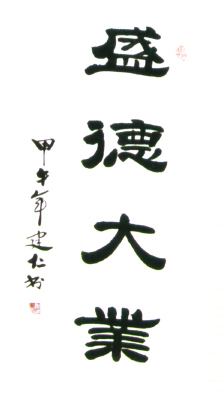 盛德大業
甲午年建仁书